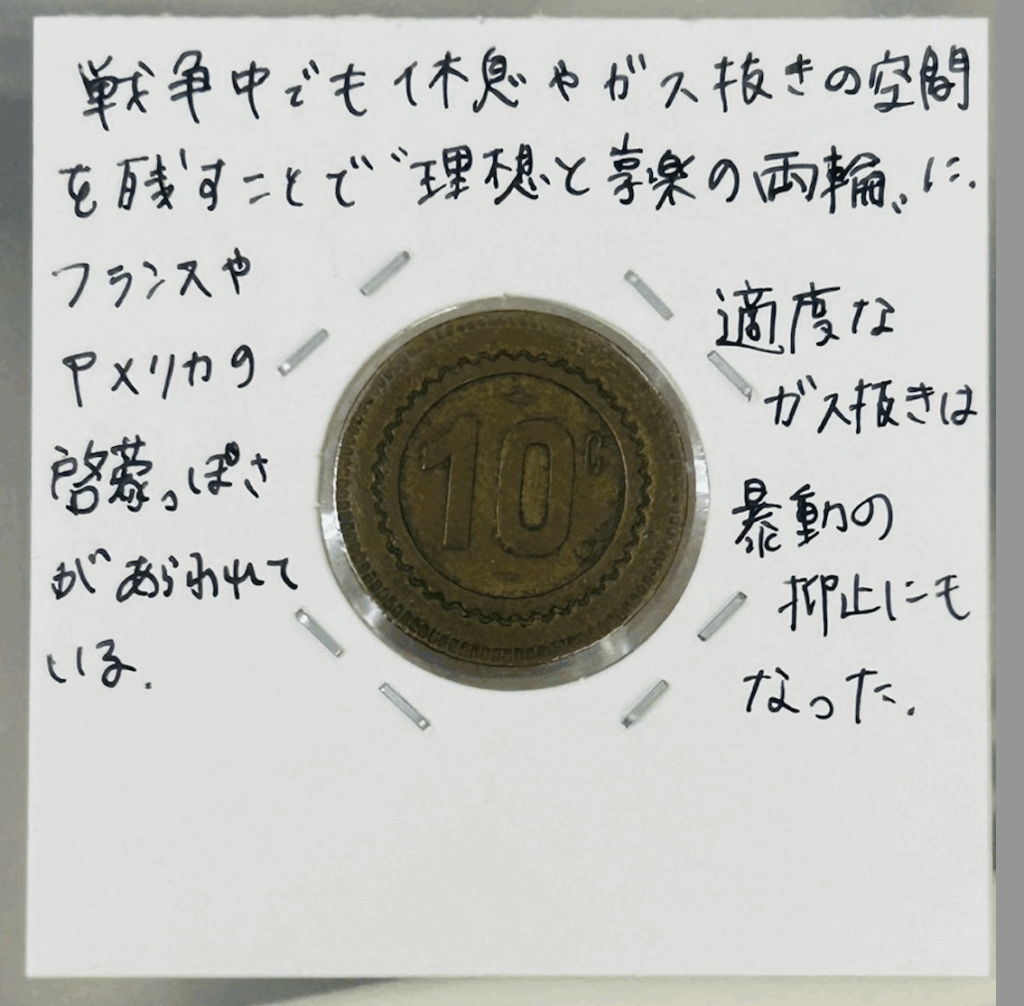 戦争中でも休息やガス抜きの空間
を残すことで"理想と享楽の両輪"に.
フランスや
アメリカの
啓蒙っぽさ
があらわれて
いる.
10 C
適度な
ガス抜きは
暴動の
抑止にも
なった.